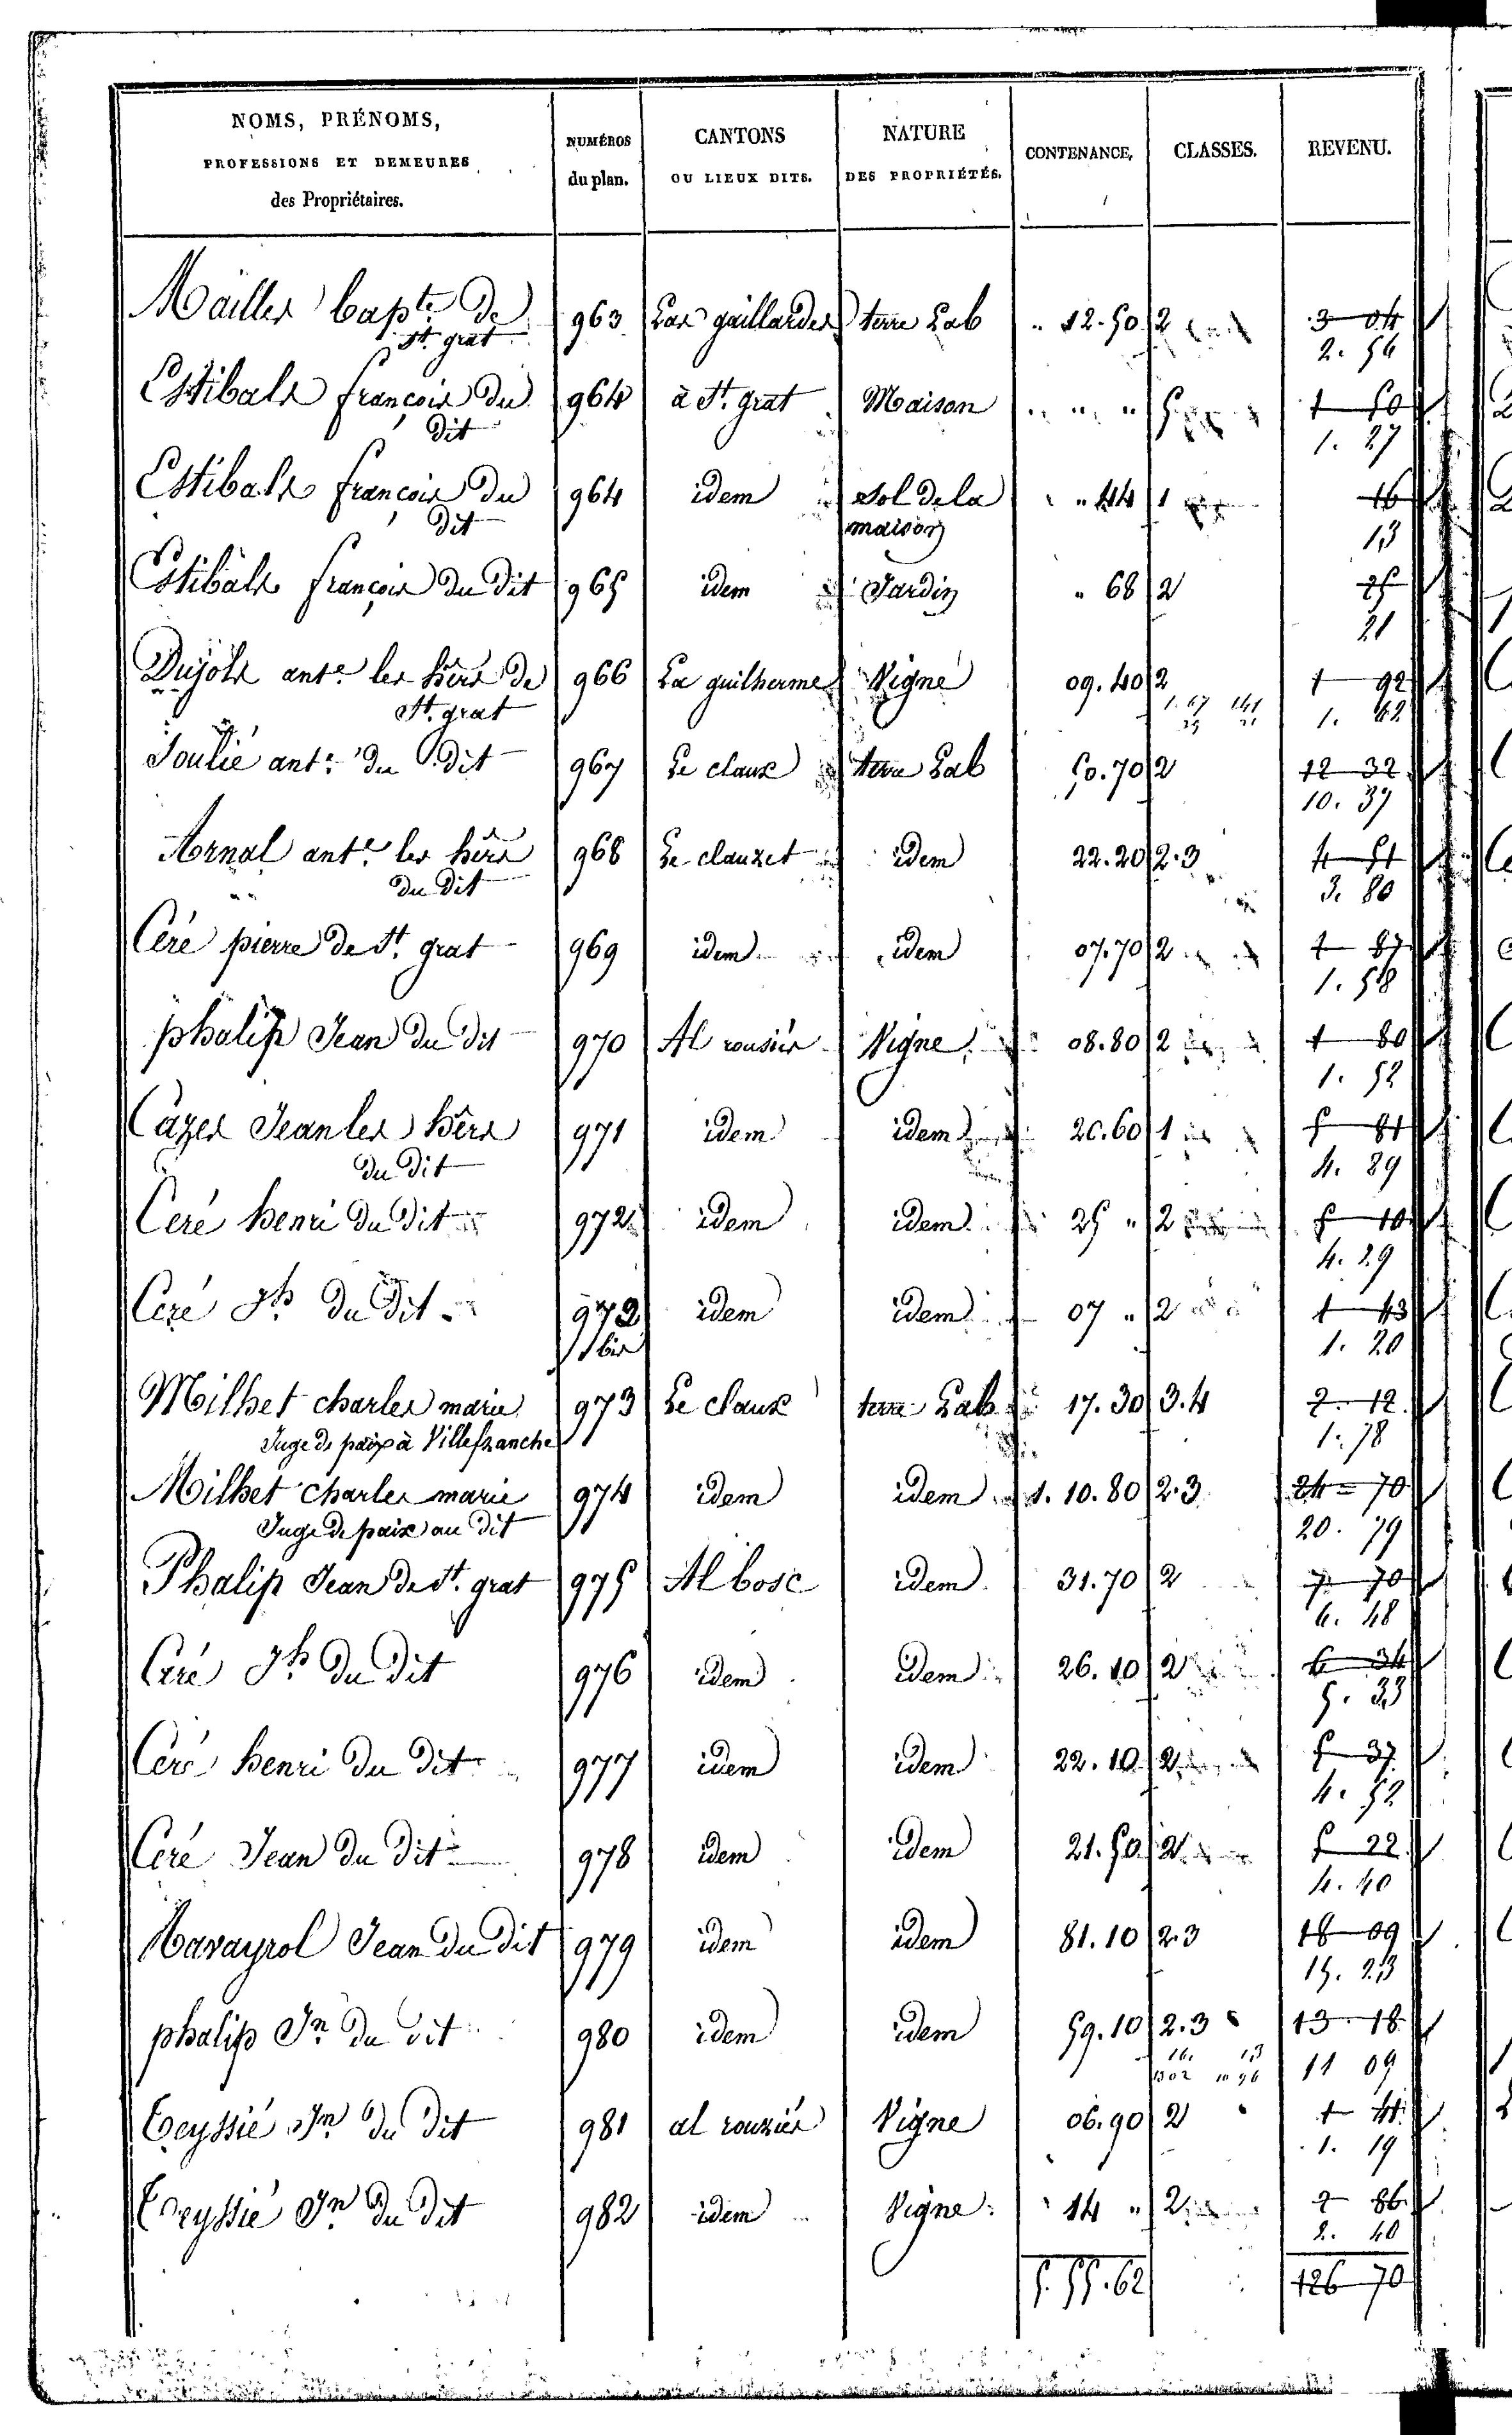 NOMS, PRÉNOMS,
PROFESSIONS ET DEMEURES
des Propriétaires.
NUMÉROS
du plan.
CANTONS
OU LIEUX DITS.
NATURE
DES PROPRIÉTÉS.
CONTENANCE,
CLASSES.
REVENU.
Mailles bapte. de 963 Las gaillardes terre Lab " 12.50 2 3 04
St. grat 2. 56
Estibals françois du 964 à St. grat Maison " " " 5 1 50
dit 1. 27
Estibals françois du 964 idem sol de la " 44 1 16
dit maison 13
Estibals françois du dit 965 idem Jardin " 68 2 25
21
Dujols ant.e les hêrs de 966 La guilherme Vigne 09.40 2 1 92
St. grat 1. 62
Soulié ant.e du dit 967 Le claux terre Lab 50.70 2 12 32
10. 37
Arnal ant.e les hêrs 968 Le clauzet idem 22.20 2.3 4 51
du dit 3. 80
Céré pierre de St. grat 969 idem idem 07.70 2 1 87
1. 58
phalip Jean du dit 970 Al rousiés Vigne 08.80 2 1 80
1. 52
Cazes Jean les hêrs 971 idem idem 20.60 1 5 81
du dit 4. 89
Ceré henri du dit 972 idem idem 25 " 2 5 10
4. 29
Ceré Jh. du dit 972 idem idem 07 " 2 1 43
bis 1. 20
Milhet charles marie 973 Le claux terre Lab 17.30 3.4 2 12
Juge de paix à Villefranche 1. 78
Milhet charles marie 974 idem idem 1. 10.80 2.3 24 = 70
Juge de paix au dit 20. 79
Phalip Jean de St. grat 975 Al bosc idem 31.70 2 7 70
6. 48
Céré Jh. du dit 976 idem idem 26.10 2 6 34
5. 33
Céré henri du dit 977 idem idem 22.10 2 5 37
4. 52
Céré Jean du dit 978 idem idem 21.50 2 5 22
4. 40
Mavayrol Jean du dit 979 idem idem 81.10 2.3 18 09
15. 23
phalip Jn. du dit 980 idem idem 59.10 2.3 13 18
11 09
Teyssié Jn. du dit 981 al rouziés Vigne 06.90 2 1 41
1. 19
Teyssié Jn. du dit 982 idem Vigne 14 " 2 2 86
2. 40
5.55.62 126 70